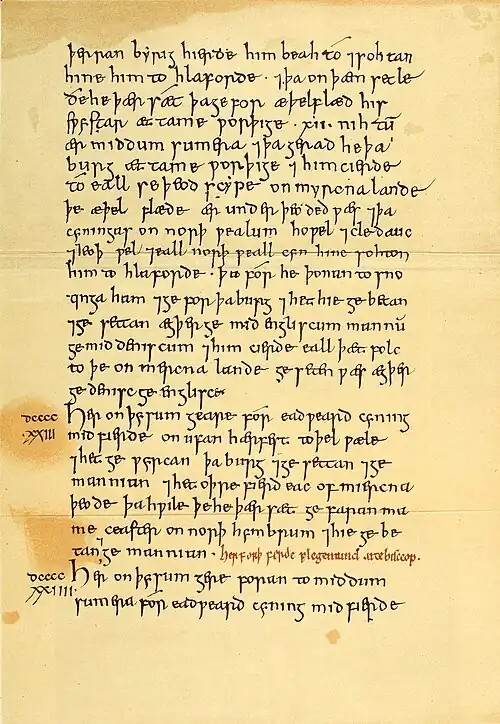 þerran byrig hierde him beah to ⁊ sohtan
hine him to hlaforde · ⁊ þa on þæm setle
ðe he þær sæt þa gefor æþelflæd his
sƿystar æt tame ƿorþige · xii · nihtū
ær middum sumera ⁊ þa gerad he þa
burg æt tame ƿorþige ⁊ him cierde
to eall se þeodscype on myrcna lande
þe æþel flæde ær underþeoded ƿæs ⁊ þa
cyningas on norþ ƿealum hoƿel ⁊ cledauc
⁊ ieoþ ƿel ⁊ eall norþ ƿeall cyn hine sohton
him to hlaforde · þa for he þonan to sno
tinga ham ⁊ ge for þa burg ⁊ het hie ge betan
⁊ ge settan ægþer ge mid engliscum mannū
ge mid deniscum ⁊ him cierde eall þæt folc
to þe on mercna lande ge seten ƿæs ægþer
ge denisc ge englisce
dcccc xxiii Her on þysum geare for eadƿeard cyning
mid fierde on ufan hærfest to þel ƿæle
⁊ het ge ƿyrcan þa burg ⁊ ge settan ⁊ ge
mannian ⁊ het oþre fierd eac of miercna
þeode þa hƿile þe he þær sæt ge faran ma
me ceaster on norþ hymbrum ⁊ hie ge be
tan ⁊ ge mannian · her forþ ferde plegemund arcebisceop ·
dcccc xxiiii Her on þysum gere foran to middum
sumera for eadƿeard cyning mid fierde